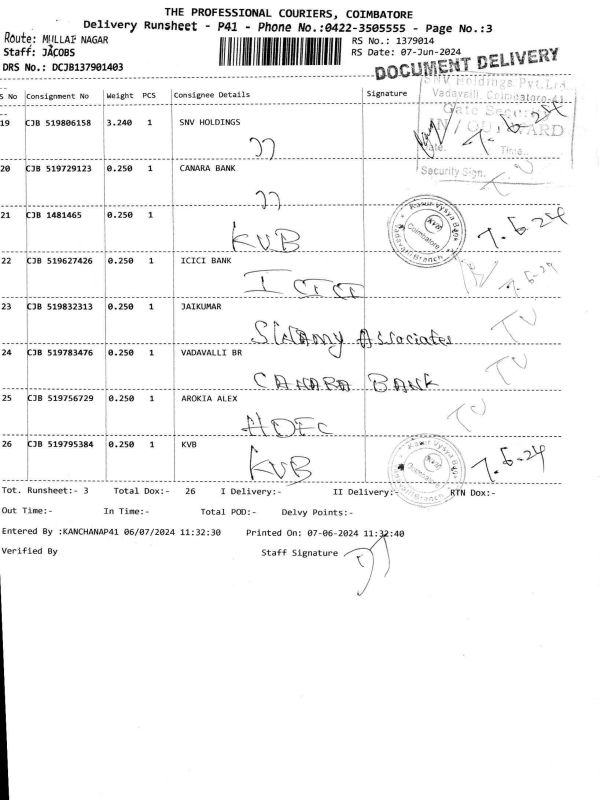 THE PROFESSIONAL COURIERS, COIMBATORE
Delivery Runsheet - P41 - Phone No.:0422-3505555 - Page No.:3
Route: MULLAI NAGAR
RS No.: 1379014
Staff: JACOBS
RS Date: 07-Jun-2024
DRS No.: DCJB137901403
DOCUMENT DELIVERY
SNV Holdings Pvt.Ltd
S No Consignment No Weight PCS Consignee Details Signature
Vadavalli, Coimbatore-41
Gate Security
19 CJB 519806158 3.240 1 SNV HOLDINGS
IN / OUTWARD
7.6.24
Date: Time:
20 CJB 519729123 0.250 1 CANARA BANK
Security Sign.
21 CJB 1481465 0.250 1
KVB
Karur Vysya Bank
KVB
Coimbatore
Vadavalli Branch
7.6.24
22 CJB 519627426 0.250 1 ICICI BANK
ICICI
7.6.24
23 CJB 519832313 0.250 1 JAIKUMAR
Swamy Associates
24 CJB 519783476 0.250 1 VADAVALLI BR
CANARA BANK
25 CJB 519756729 0.250 1 AROKIA ALEX
HDFC
26 CJB 519795384 0.250 1 KVB
KVB
Karur Vysya Bank
KVB
Coimbatore
Vadavalli Branch
7.6.24
Tot. Runsheet:- 3 Total Dox:- 26 I Delivery:- II Delivery:- RTN Dox:-
Out Time:- In Time:- Total POD:- Delvy Points:-
Entered By :KANCHANAP41 06/07/2024 11:32:30 Printed On: 07-06-2024 11:32:40
Verified By Staff Signature